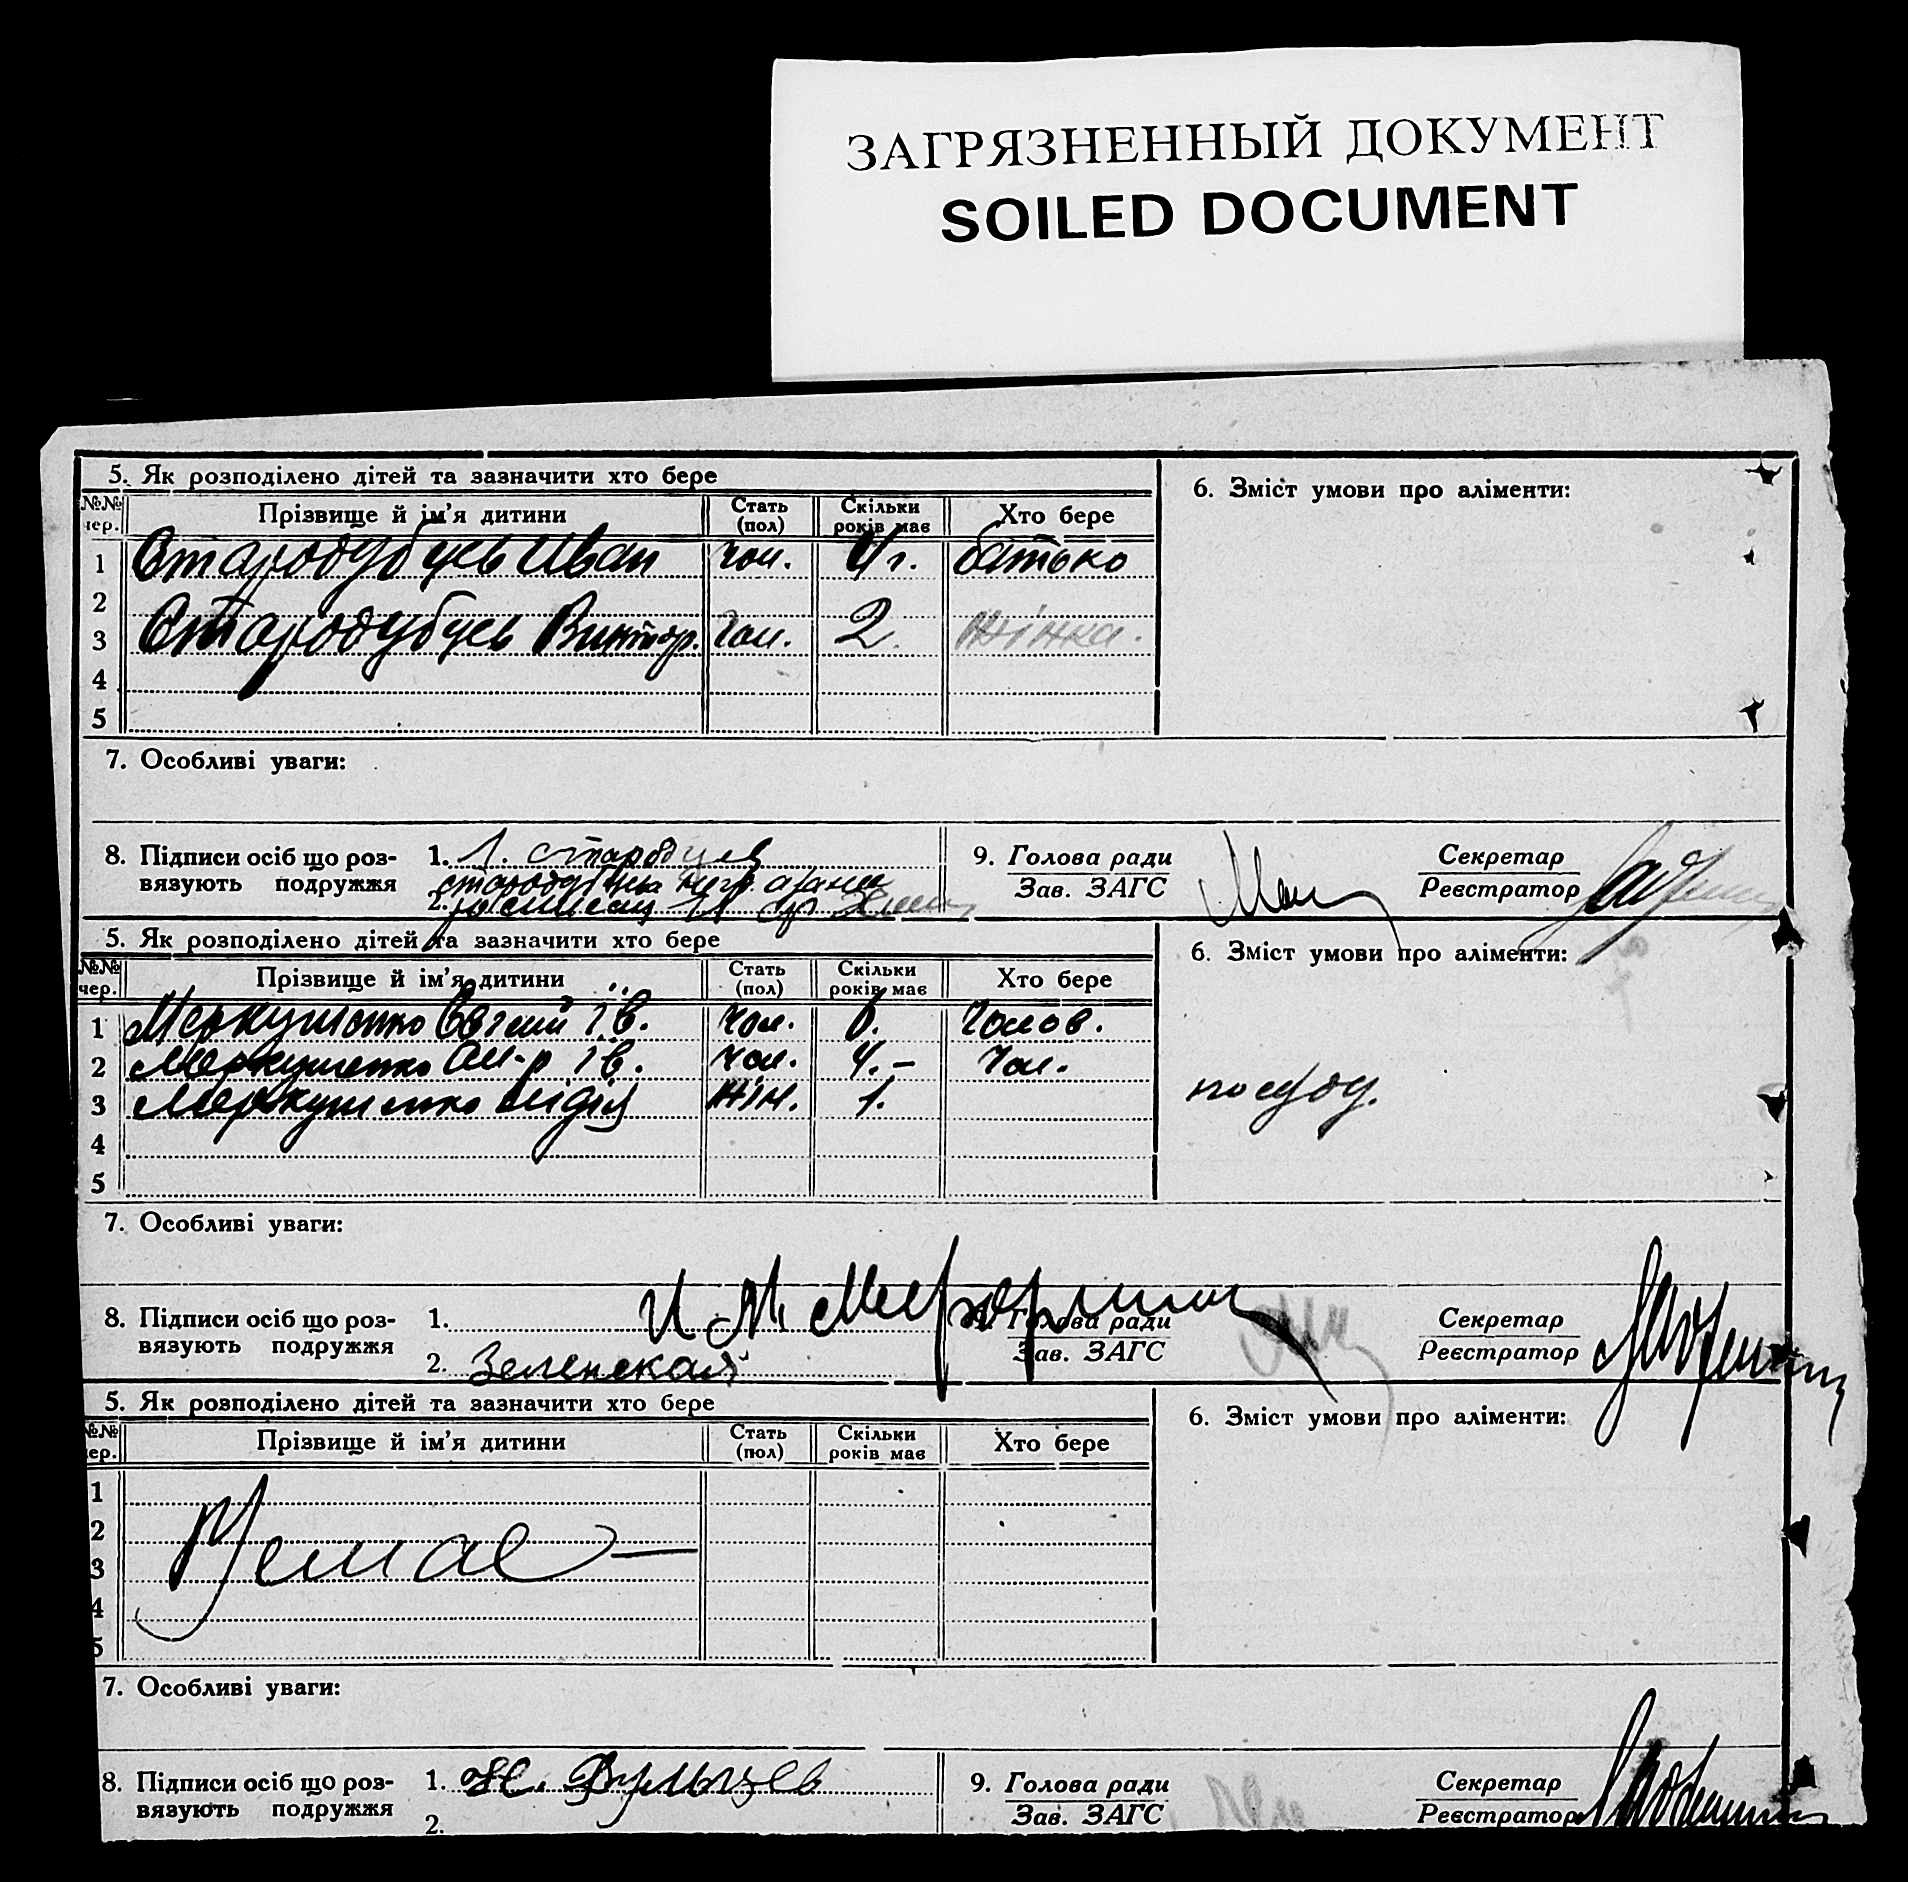 ЗАГРЯЗНЕННЫЙ ДОКУМЕНТ
SOILED DOCUMENT
5. Як розподілено дітей та зазначити хто бере
6. Зміст умови про аліменти:
№№ чер. Прізвище й ім'я дитини Стать (пол) Скільки років має Хто бере
1 Стародубцев Иван чол. 4 г. батько
2
3 Стародубцев Виктор. чол. 2 жінка.
4
5
7. Особливі уваги:
8. Підписи осіб що роз-
вязують подружжя
1.
2.
9. Голова ради
Зав. ЗАГС
Секретар
Реєстратор
5. Як розподілено дітей та зазначити хто бере
6. Зміст умови про аліменти:
№№ чер. Прізвище й ім'я дитини Стать (пол) Скільки років має Хто бере
1 Меркушенко Євгений Ів. чол. Чолов.
2 Меркушенко Ол-р Ів. чол. 4.- Чол.
3 Меркушенко Лідія жін. 1.
по суду.
4
5
7. Особливі уваги:
8. Підписи осіб що роз-
вязують подружжя
1. И. М.
2. Зеленская
Голова ради
Зав. ЗАГС
Секретар
Реєстратор
5. Як розподілено дітей та зазначити хто бере
6. Зміст умови про аліменти:
№№ чер. Прізвище й ім'я дитини Стать (пол) Скільки років має Хто бере
1
2
Немає —
3
4
5
7. Особливі уваги:
8. Підписи осіб що роз-
вязують подружжя
1.
2.
9. Голова ради
Зав. ЗАГС
Секретар
Реєстратор